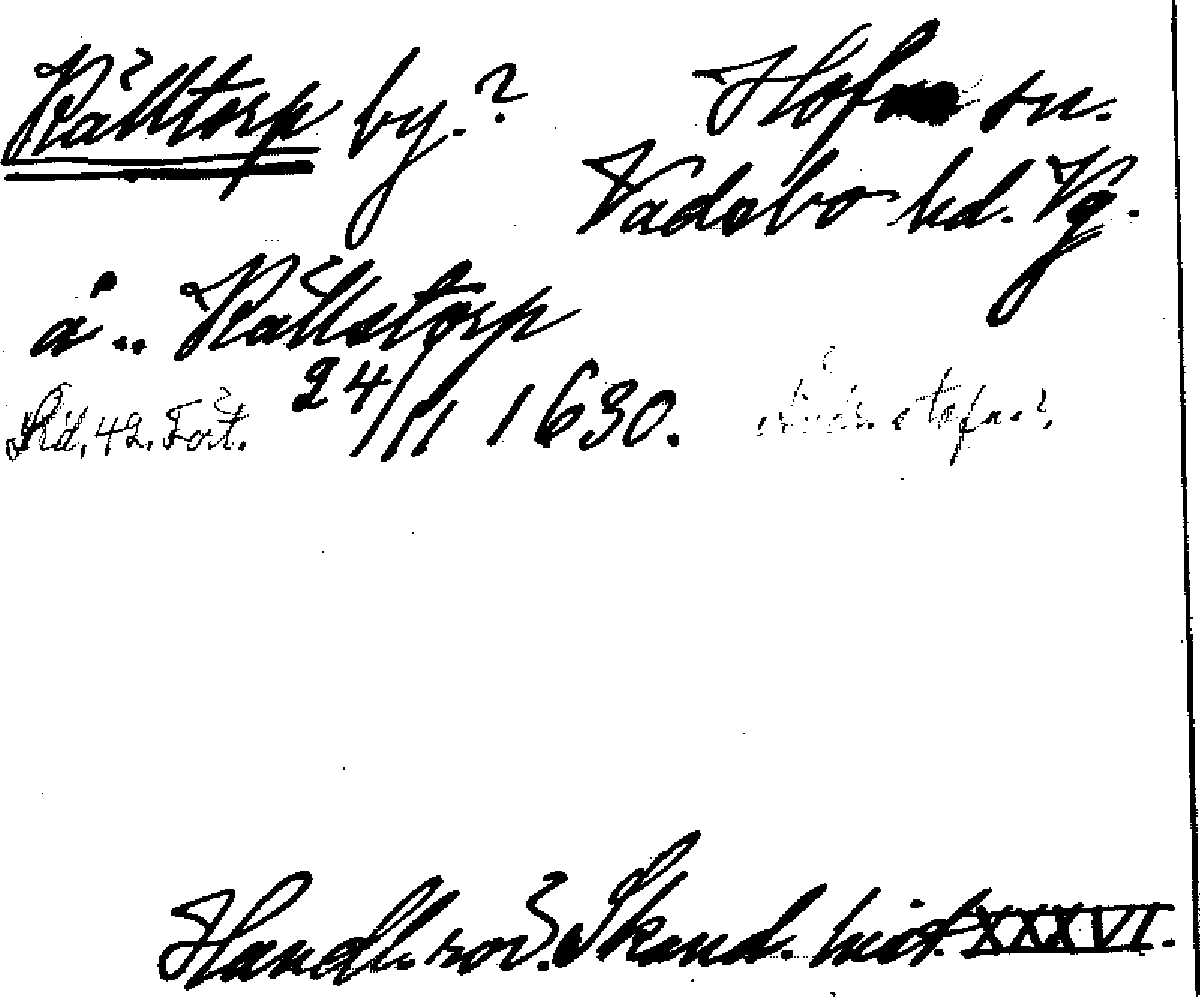 Rålltorp by.? Hofva sn.
Vadsbo hd. Vg.
å .. Rållstorp
Rd. 42. Fört. 24/11 1630.
Handl. rör. Skand. hist. XXXVI.